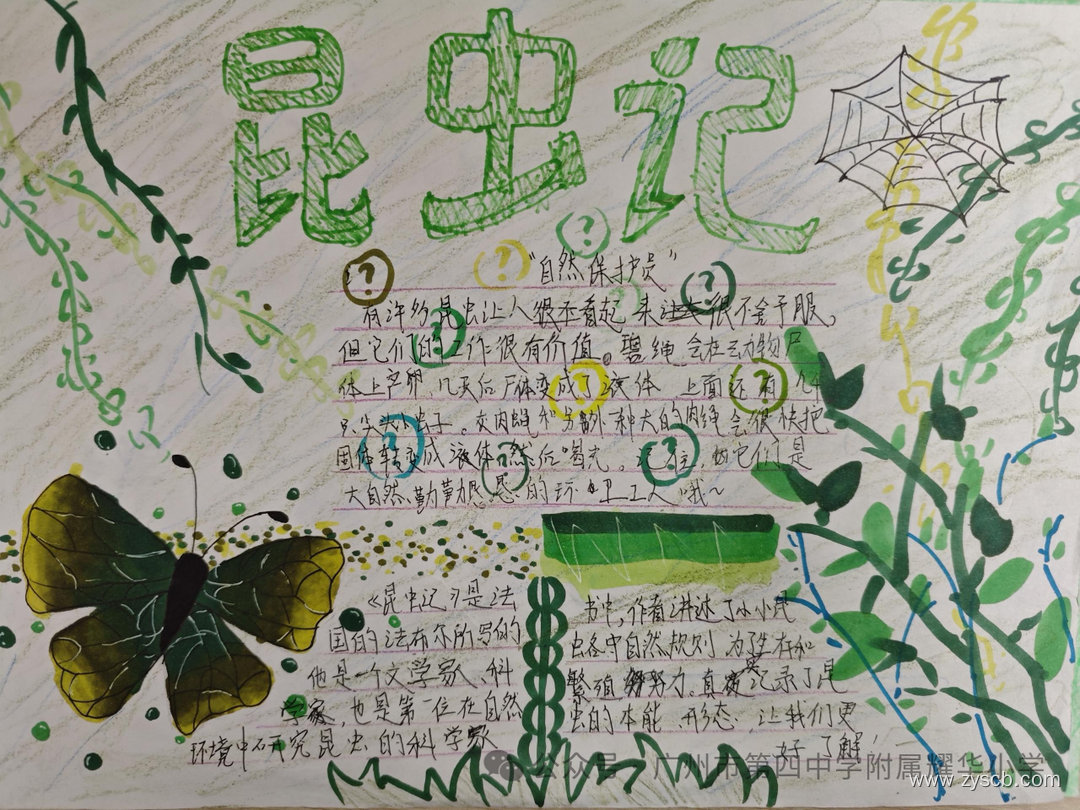 昆虫记
"自然保护员"
有许多昆虫让人很不看起来很不舍予服。
但它们的工作很有价值。碧绳会在动物尸
体上产卵,几天后尸体变成了液体,上面还有几千
只尖头。友肉蝇和另外一种大的肉绳会很快把
固体转变成液体然后喝光。记住,它们是
大自然勤勤恳恳的环卫工人哦~
《昆虫记》是法
国的法布尔所写的
他是一个文学家、科
学家,也是第一位在自然
环境中研究昆虫的科学家
书中,作者讲述了小小昆
虫各中自然规则,为了生存和
繁殖努力,真实记录了昆
虫的本能、形态,让我们更
好了解
公众号·广州市第四中学附属耀华小学
www.zyscb.com